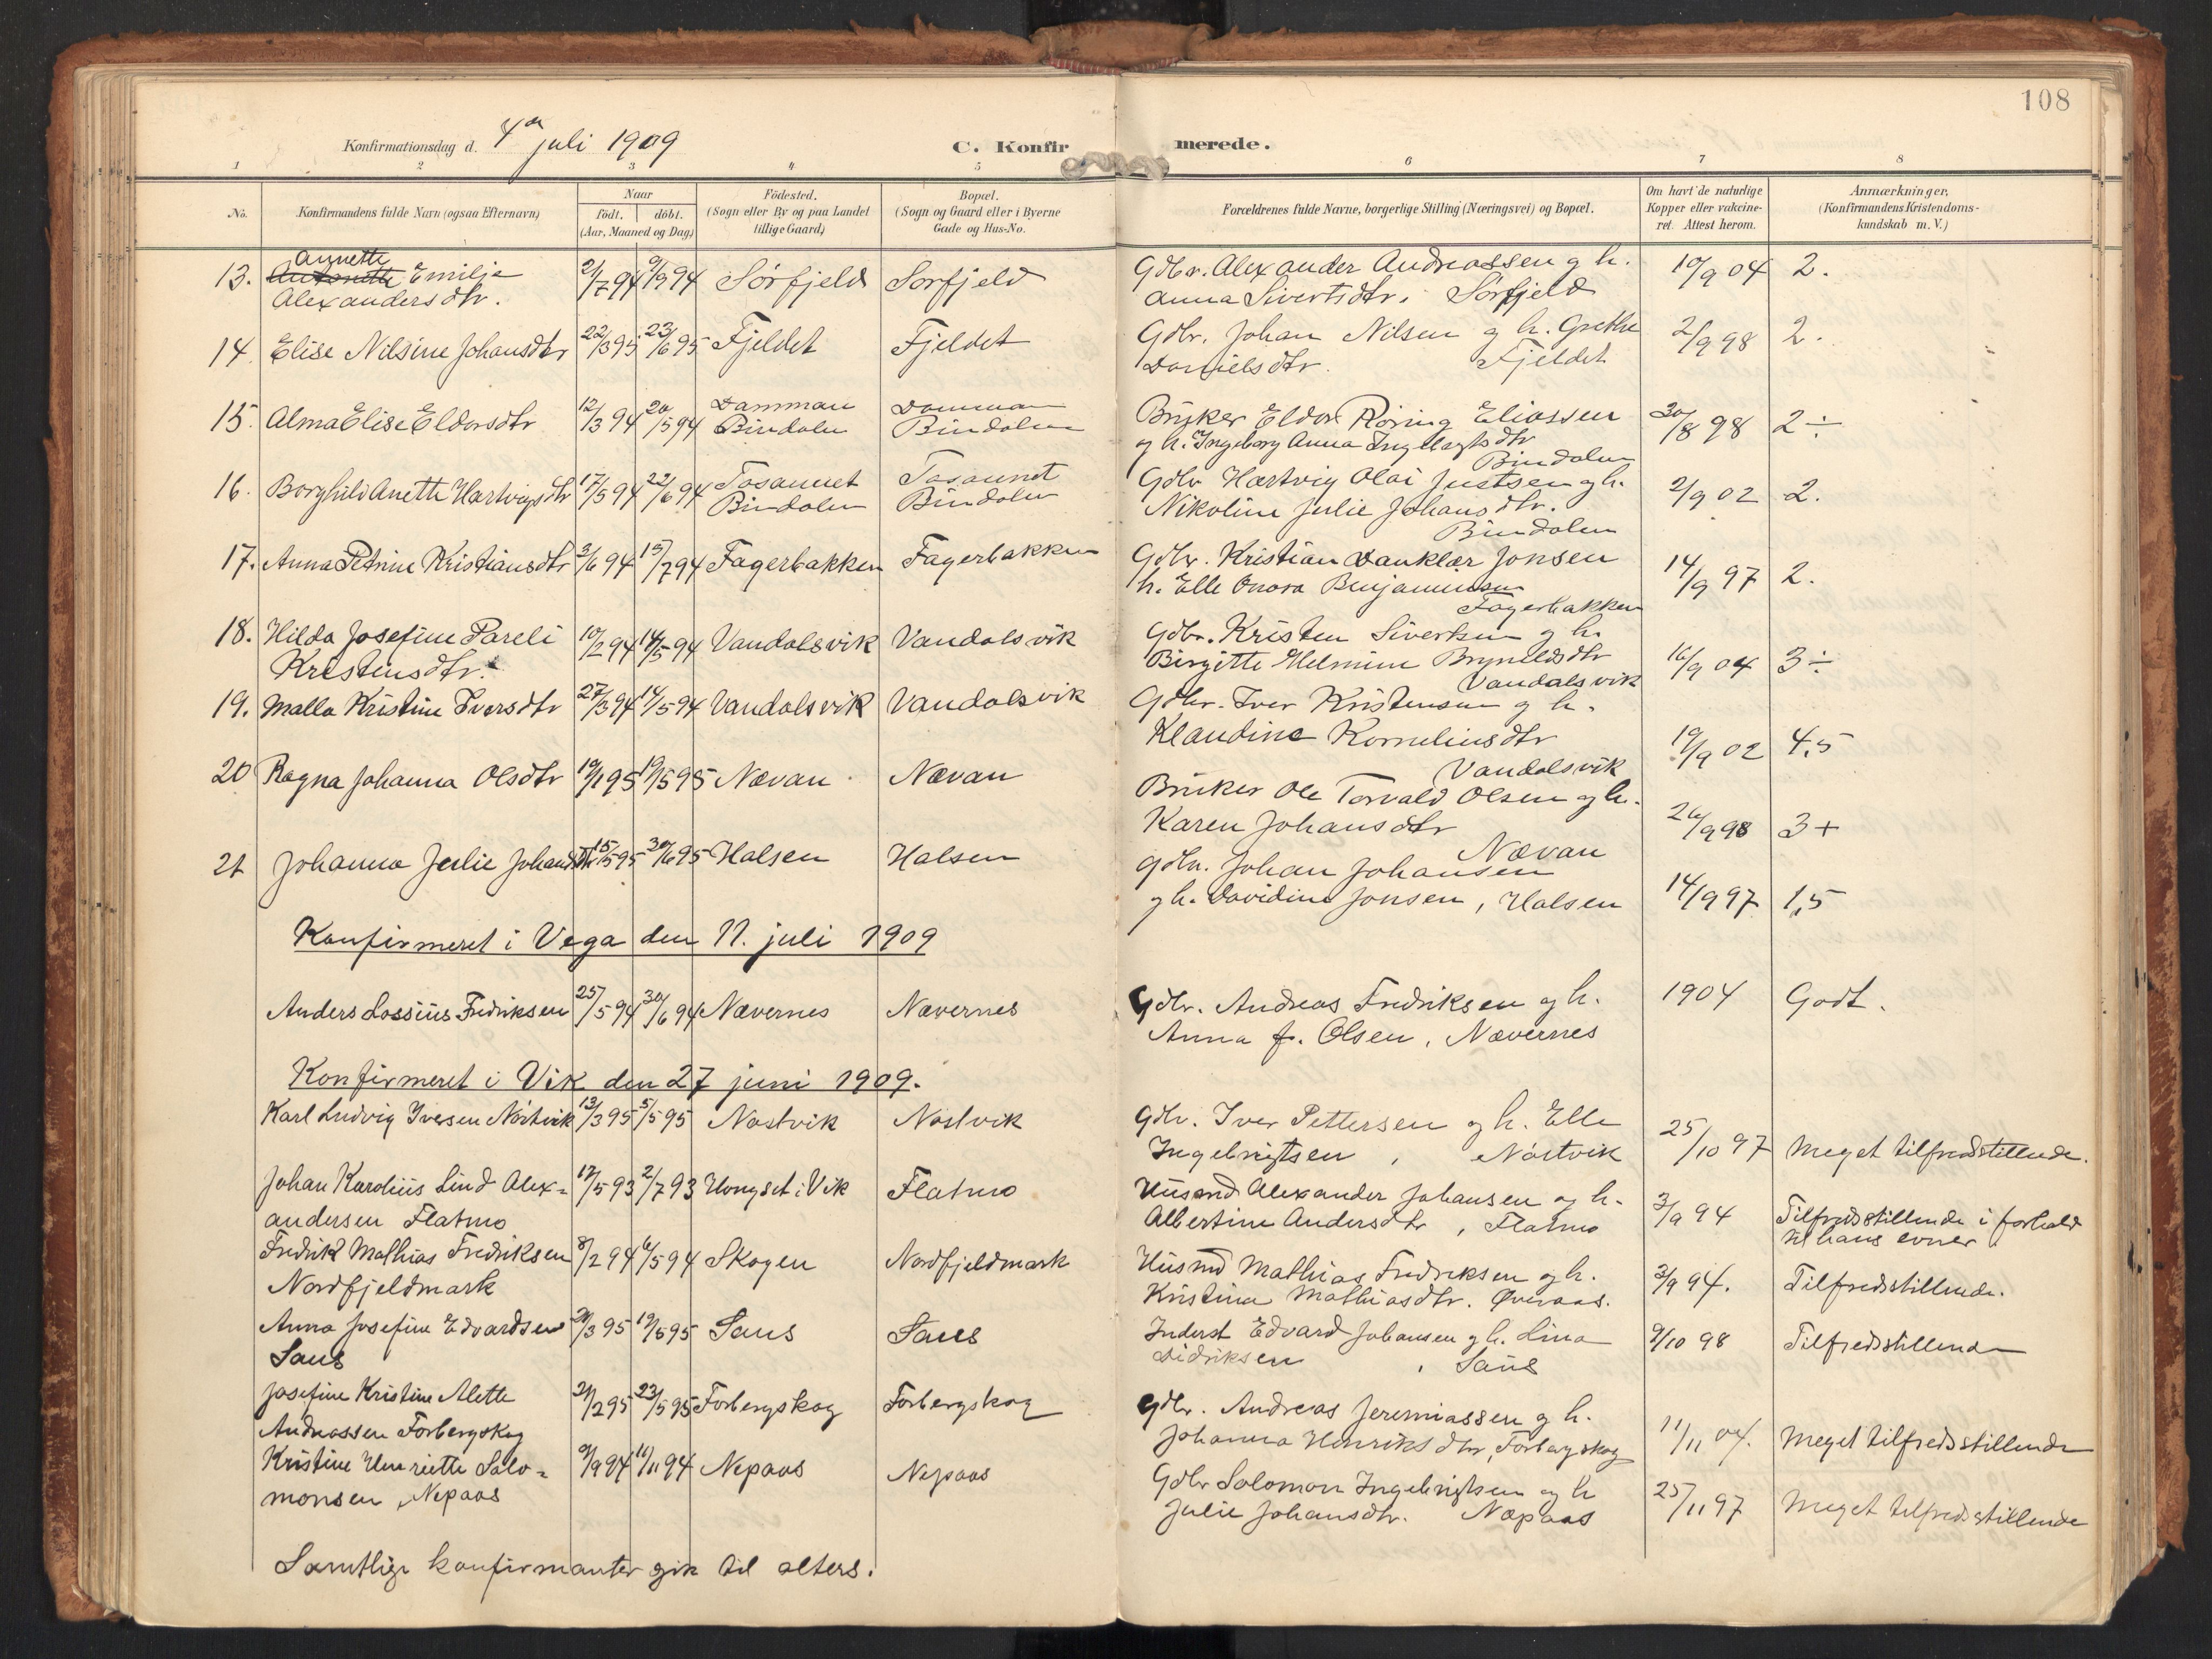 108
Konfirmationsdag d. 4de juli 1909
C. Konfirmerede.
1 2 3 4 5 6 7 8
No.
Konfirmandens fulde Navn (ogsaa Efternavn)
Naar
födt. döbt.
(Aar, Maaned og Dag)
Födested.
(Sogn eller By og paa Landet
tillige Gaard)
Bopæl.
(Sogn og Gaard eller i Byerne
Gade og Hus-No.
Forældrenes fulde Navne, borgerlige Stilling (Næringsvei) og Bopæl.
Om havt de naturlige
Kopper eller vakcine-
ret. Attest herom.
Anmærkninger,
(Konfirmandens Kristendoms-
kundskab m. V.)
Annette
13. Antonette Emilje 2/7 94 9/9 94 Sörfjeld Sörfjeld Gdbr. Alexander Andreassen og h. 10/9 04 2.
Alexandersdtr. Anna Sivertsdtr. Sörfjeld
14. Elise Nilsine Johansdtr 22/3 95 23/6 95 Fjeldet Fjeldet Gdbr. Johan Nilsen og h. Grethe 2/9 98 2.
Danielsdtr. Fjeldet
15. Alma Elise Eldorsdtr 12/3 94 20/5 94 Damman Damman Brüker Eldor Röring Eliassen 30/8 98 2÷
Bindalen Bindalen og h. Ingeborg Anna Ingebrigtsdtr
Bindalen
16. Borghild Anette Hartvigsdtr 17/5 94 22/6 94 Tosaunet Tosaunet Gdbr Hartvig Olai Justsen og h. 2/9 02 2.
Bindalen Bindalen Nikoline Julie Johansdtr.
Bindalen
17. Anna Petrine Kristiansdtr 3/6 94 15/7 94 Fagerbakken Fagerbakken Gdbr. Kristian Danklær Jonsen 14/9 97 2.
h. Elle Onora Benjaminsen
Fagerbakken
18. Hilda Josefine Pareli 10/2 94 14/5 94 Vandalsvik Vandalsvik Gdbr. Kristen Sivertsen og h.
Kristensdtr. Birgitte Helmine Brynildsdtr 16/9 04 3÷
Vandalsvik
19. Malla Kristine Iversdtr 27/3 94 14/5 94 Vandalsvik Vandalsvik Gdbr. Iver Kristensen og h.
Klaudine Korneliusdtr 19/9 02 4,5
Vandalsvik
20 Ragna Johanna Olsdtr 10/1 95 19/5 95 Nævan Nævan Brüker Ole Torvald Olsen og h.
Karen Johansdtr 26/9 98 3+
Nævan
21 Johanna Julie Johansdtr 15/5 95 30/6 95 Halsen Halsen Gdbr. Johan Johansen
og h. Davidine Jonsen, Halsen 14/9 97 1,5
Konfirmeret i Vega den 11. juli 1909
Anders Lossius Fredriksen 25/5 94 30/6 94 Nævernes Nævernes Gdbr. Andreas Fredriksen og h. 1904 Godt.
Anna f. Olsen, Nævernes
Konfirmeret i Vik den 27 juni 1909.
Karl Ludvig Iversen Nöstvik 13/3 95 5/5 95 Nöstvik Nöstvik Gdbr. Iver Pettersen og h. Elle 25/10 97 Meget tilfredsstillende.
Ingebrigtsen, Nöstvik
Johan Karolius Lind Alex= 17/5 93 2/7 93 Hongset i Vik Flatmo Husmd Alexander Johansen og h. 3/9 94 Tilfredsstillende i forhold
andersen Flatmo Albertine Andersdtr, Flatmo til hans evner.
Fredrik Mathias Fredriksen 8/2 94 6/5 94 Skogen Nordfjeldmark Husmd Mathias Fredriksen og h. 3/9 94. Tilfredsstillende.
Nordfjeldmark Kristina Mathiasdtr. Øveraas.
Anna Josefine Edvardsen 28/3 95 19/5 95 Saus Saus Inderst Edvard Johansen og h. Lina 9/10 98 Tilfredsstillende
Saus Didriksen, Saus
Josefine Kristine Alette 21/2 95 23/5 95 Forbergskog Forbergskog Gdbr. Andreas Jeremiassen og h. 11/11 04. Meget tilfredsstillende
Andreassen Forbergskog Johanna Henriksdtr, Forbergskog
Kristine Henriette Salo= 9/9 94 11/11 94 Nepaas Nepaas Gdbr Salomon Ingebrigtsen og h 25/11 97 Meget tilfredsstillende
monsen, Nepaas Julie Johansdtr. Næpaas
Samtlige konfirmanter gik til alters.